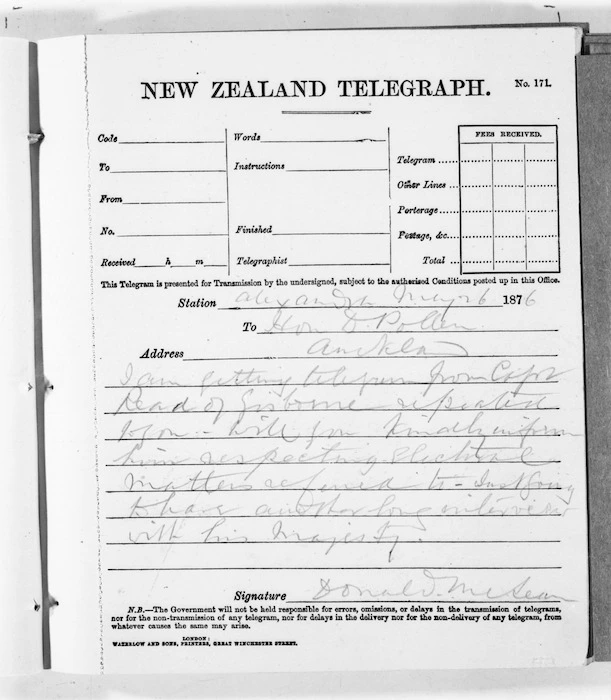 NEW ZEALAND TELEGRAPH. No. 171.
Code
Words
FEES RECEIVED.
To
Instructions
Telegram
Other Lines
From
Porterage
No.
Finished
Postage, &c.
Received h m
Telegraphist
Total
This Telegram is presented for Transmission by the undersigned, subject to the authorised Conditions posted up in this Office.
Station Alexandra May 6 1876
To Hon D Pollen
Address Auckland
I am getting telegram from Capt
Read of Gisborne repeated
to you - will you kindly inform
him respecting Electoral
matters referred to - Just going
to have another long interview
with his Majesty.
Signature Donald McLean
N.B.—The Government will not be held responsible for errors, omissions, or delays in the transmission of telegrams,
nor for the non-transmission of any telegram, nor for delays in the delivery nor for the non-delivery of any telegram, from
whatever causes the same may arise.
LONDON:
WATERLOW AND SONS, PRINTERS, GREAT WINCHESTER STREET.